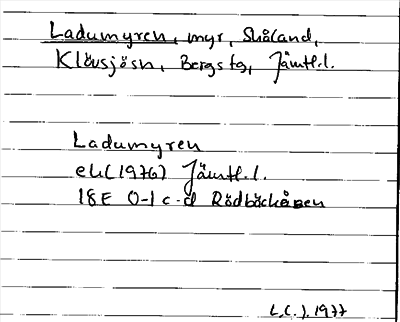 Ladumyren, myr, Skåland,
Klövsjö sn, Bergs tg, Jämtl.l.
Ladumyren
ek (1976) Jämtl.l.
18E 0-1 c-d Rödböckåsen
L.C.J. 1977